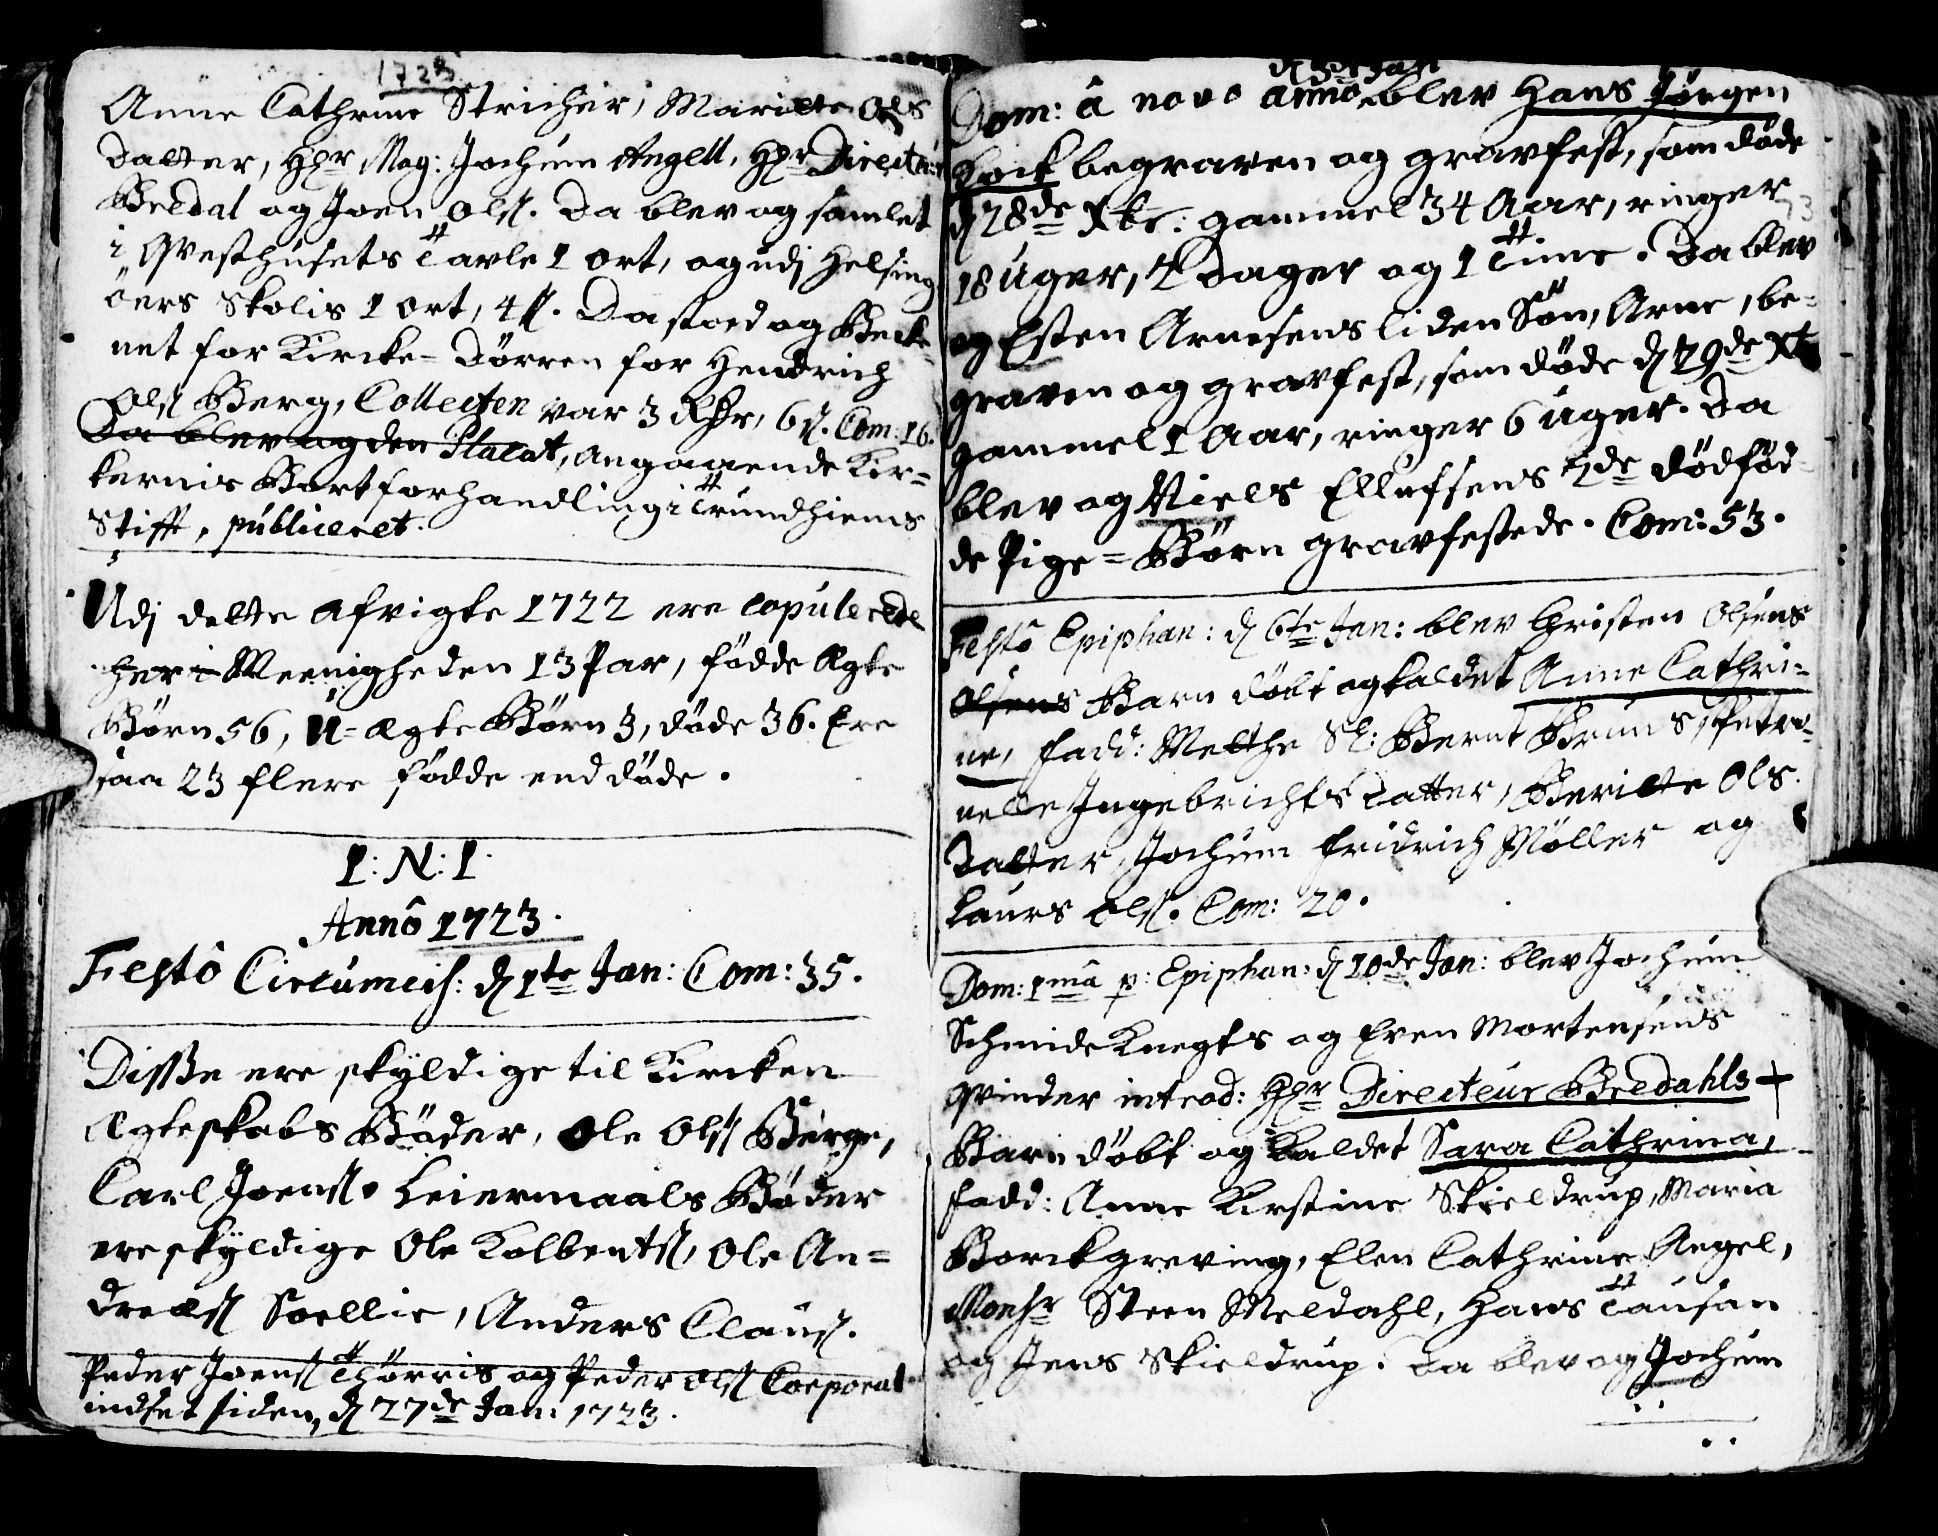 1723
Anne Cathrine Stricher, Maritte Ols
datter, Hr Mag: Jochum Angell, Hr Directeur
Bredal og Joen Ols. Da blev og samlet
i Qvesthusets Tavle 1 ort, og udj Helsing
öers Skolis 1 ort, 4 s. Da stoed og Beck-
net for Kircke-Dörren for Hendrich
Ols Berg, Collecten var 3 Rdr, 6 s. Com: 16.
Da blev og den Placat, angaaende Kir-
kernis Bortforhandling i Trundhiems
Stifft, publiceret.
Udj dette afvigte 1722 ere copulerede
her i Meenigheden 13 Par, födde Ægte
Börn 56, U-ægte Börn 3, döde 36. Ere
saa 23 flere födde end döde.
I: N: I.
Annô 1723.
Festô Circumcis: d 1te Jan: Com: 35.
Disse ere skyldige til Kircken
Ægteskabs Böder, Ole Ols Berge,
Carl Joens. Leiermaals Böder
ere skyldige Ole Kolbents, Ole An-
dreæs Soellie, Anders Claus.
Peder Joens Thörris og Peder Ols Corporal
indset siden, d 27de Jan: 1723.
d 3de Jan
Dom: â novo anno blev Hans Jörgen
Bock begraven og gravfest, som döde
d 28de Xbr: gammel 34 Aar, ringer
18 Uger, 2 Dager og 1 Time. Da blev
og Esten Arnesens liden Sön, Arne, be-
graven og gravfest, som döde d 29de Xb
gammel 1 Aar, ringer 6 Uger. Da
blev og Niels Ellufsens 2de dödföd-
de Pige-Börn gravfestede. Com: 53.
Festô Epiphan: d 6te Jan: blev Christen Olsens
Olsens Barn döbt og kaldet Anne Cathri-
ne, fadd: Mette Sl: Bernt Bruns, Petro-
nelle Ingebrichts Datter, Beritte Ols
Datter, Jochum Fridrich Möller og
Laurs Ols. Com: 20.
Dom: 1mâ p: Epiphan: d 10de Jan: blev Jochum
Schmideknegts og Even Mortensens
Qvinder introd: Hr Directeur Bredahls
Barn döbt og kaldet Sara Cathrina,
fadd: Anne Kirstine Skieldrup, Maria
Borckgreving, Elen Cathrine Angel,
Monsr Steen Meldahl, Hans Tausan
og Jens Skieldrup. Da blev og Jochum